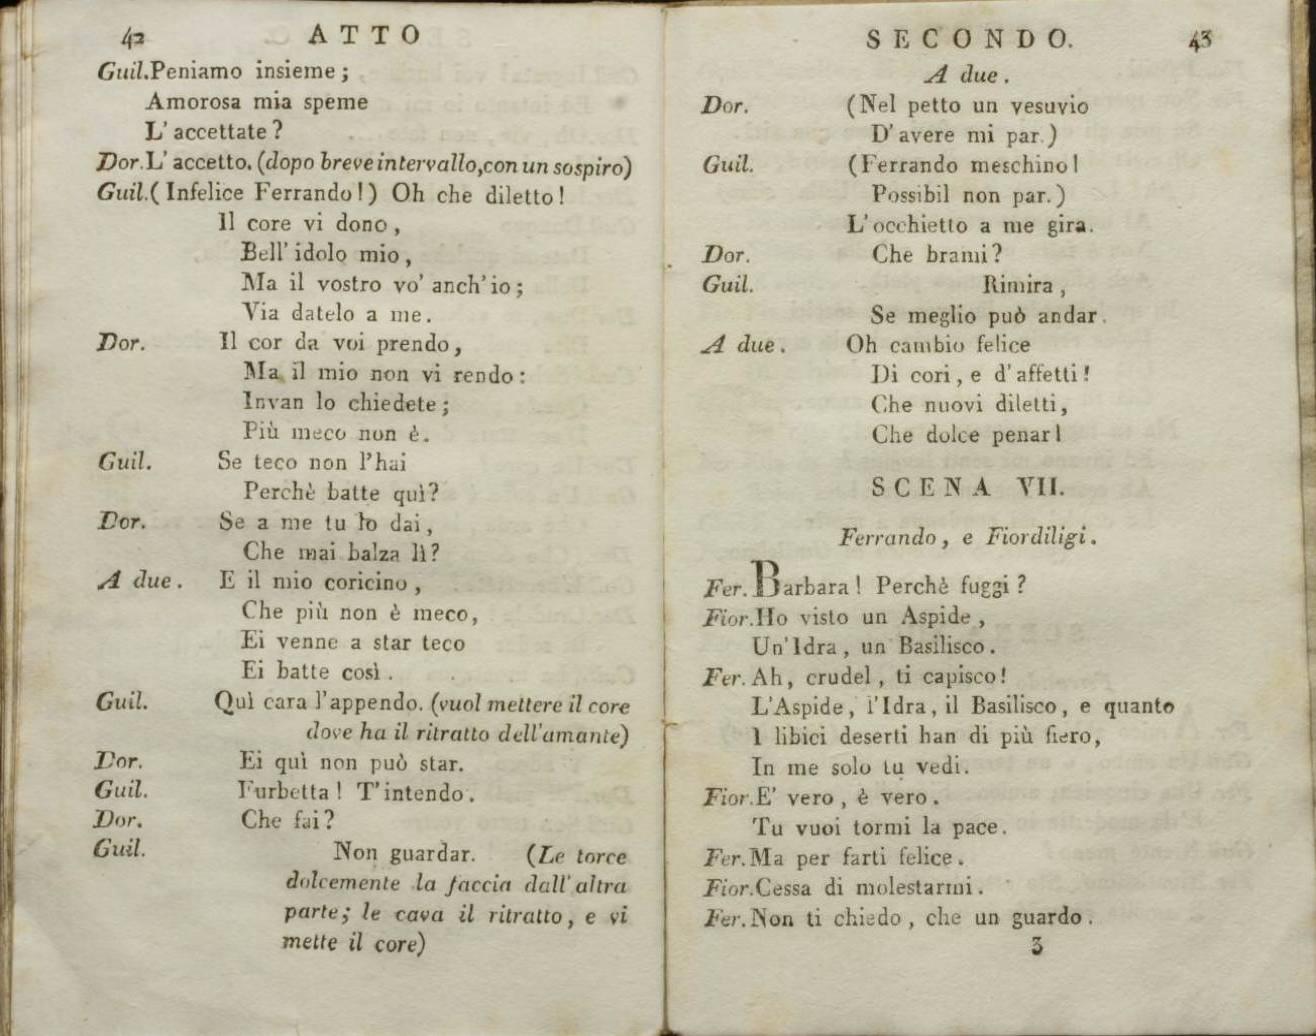 42 ATTO
Guil. Peniamo insieme;
Amorosa mia speme
L' accettate?
Dor. L' accetto. (dopo breve intervallo, con un sospiro)
Guil. (Infelice Ferrando!) Oh che diletto!
Il core vi dono,
Bell' idolo mio,
Ma il vostro vo' anch' io;
Via datelo a me.
Dor. Il cor da voi prendo,
Ma il mio non vi rendo:
Invan lo chiedete;
Più meco non è.
Guil. Se teco non l'hai
Perchè batte quì?
Dor. Se a me tu lo dai,
Che mai balza lì?
A due. E il mio coricino,
Che più non è meco,
Ei venne a star teco
Ei batte così.
Guil. Quì cara l'appendo. (vuol mettere il core
dove ha il ritratto dell'amante)
Dor. Ei quì non può star.
Guil. Furbetta! T'intendo.
Dor. Che fai?
Guil. Non guardar. (Le torce
dolcemente la faccia dall' altra
parte; le cava il ritratto, e vi
mette il core)
SECONDO. 43
A due.
Dor. (Nel petto un vesuvio
D' avere mi par.)
Guil. (Ferrando meschino!
Possibil non par.)
L'occhietto a me gira.
Dor. Che brami?
Guil. Rimira,
Se meglio può andar.
A due. Oh cambio felice
Di cori, e d'affetti!
Che nuovi diletti,
Che dolce penar!
SCENA VII.
Ferrando, e Fiordiligi.
Fer. Barbara! Perchè fuggi?
Fior. Ho visto un Aspide,
Un'Idra, un Basilisco.
Fer. Ah, crudel, ti capisco!
L'Aspide, l'Idra, il Basilisco, e quanto
I libici deserti han di più fiero,
In me solo tu vedi.
Fior. E' vero, è vero.
Tu vuoi tormi la pace.
Fer. Ma per farti felice.
Fior. Cessa di molestarmi.
Fer. Non ti chiedo, che un guardo.
3